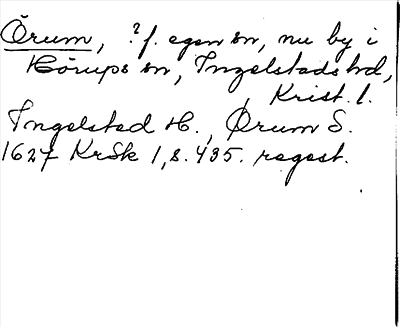 Örum, ?f. egen sn, nu by i
Hörups sn, Ingelstads hd,
Krist. l.
Ingelsted H., Ørum S.
1627 KrSk 1, s. 435. regest.